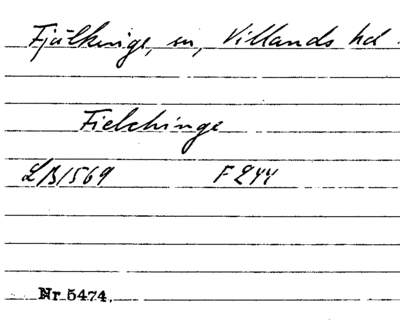 Fjälkinge, sn, Villands hd.
Fielchinge
LB1569 F244
Nr 5474.